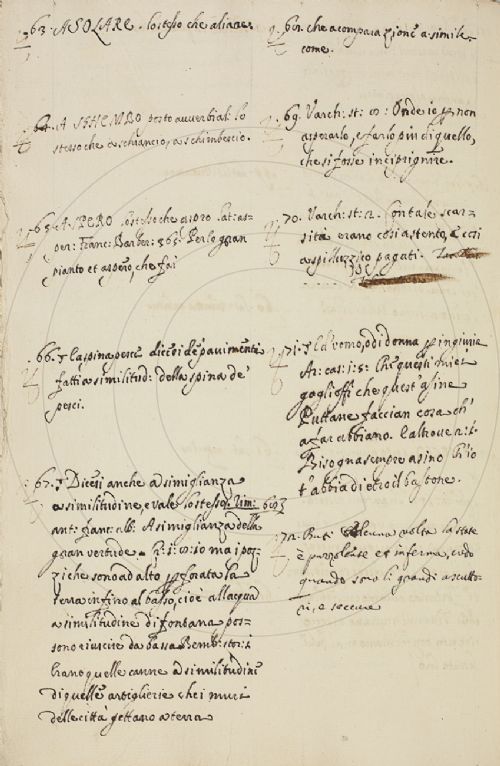 63. ASOLARE. lo stesso che aliare.
64. A SGHEMBO posto avverbial: lo
stesso che a schiancio, a schimbescio.
65. ASPERO lo stesso che aspro lat: as-
per: Franc: Barber: 363: Per lo gran
pianto et aspero, che fai
66. † la spina pesce dicesi de' pavimenti
fatti a similitud: della spina de'
pesci.
67. † Dicesi anche a simiglianza
a similitudine, e vale lo stesso. Rim:
ant: fant: alb: A simiglianza della
gran vertude
ziche sono ad alto perforata la
terra infino al basso, cioè all'acqua
a similitudine di fontana pos-
sono riuscire da bassa Bemb: stor: i
brano quelle canne a similitudine
di quelle artiglierie che i muri
delle città gettano a terra
68. che a comparazione a simile.
come.
69. Varch: st: Onde io per non
asperarlo, e farlo più di quello,
che si fosse inciprignire.
70. Varch: st: 12. Con tale scar-
sità erano così a stento, e così
a spilluzzico pagati.
71. † ad uomo, o di donna per ingiuria
Ar: cas: Che questi miei
gaglioffi che quest'asine
Puttane faccian cosa ch'
a far abbiano. E altrove
Bisogna sempre asino ch'io
t'abbia dietro il bastone.
72. Buti alcuna volta la state
è puzzolente et inferma, cado
quando sono li grandi asciutto-
ri, e seccure